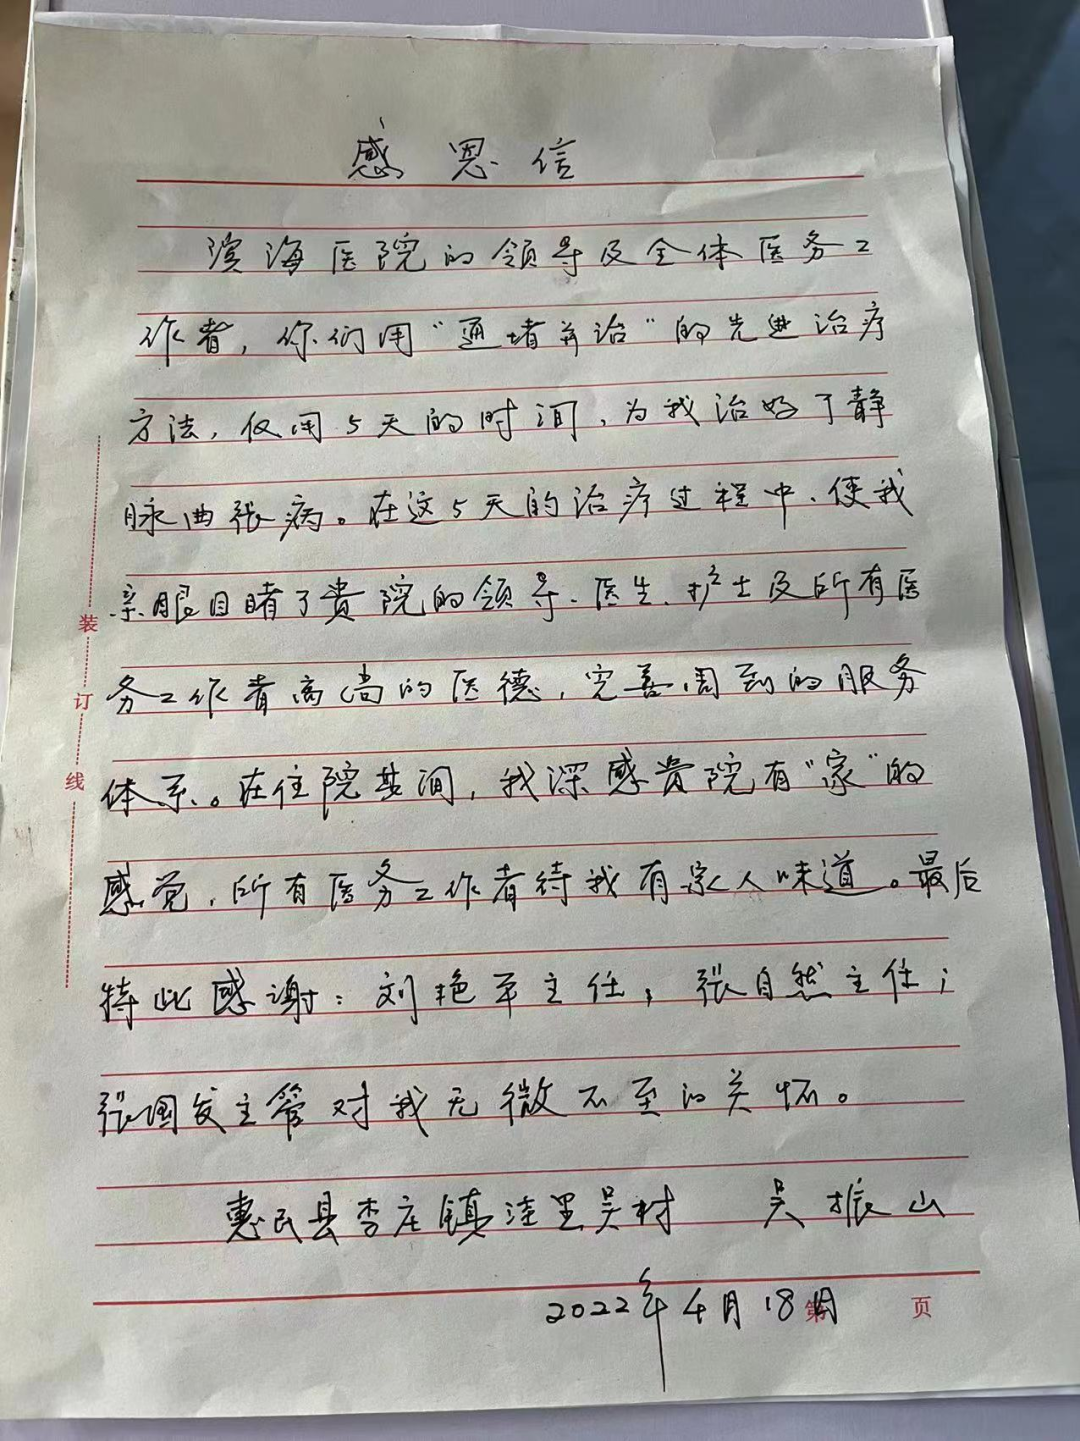 感恩信
滨海医院的领导及全体医务工
作者，你们用“通堵并治”的先进治疗
方法，仅用5天的时间，为我治好了静
脉曲张病。在这5天的治疗过程中，使我
亲眼目睹了贵院的领导、医生、护士及所有医
务工作者高尚的医德，完善周到的服务
体系。在住院其间，我深感贵院有“家”的
感觉，所有医务工作者待我有家人味道。最后
特此感谢：刘艳平主任；张自然主任；
张国发主管对我无微不至的关怀。
惠民县李庄镇洼里吴村 吴振山
2022年4月18日
第 页
装
订
线